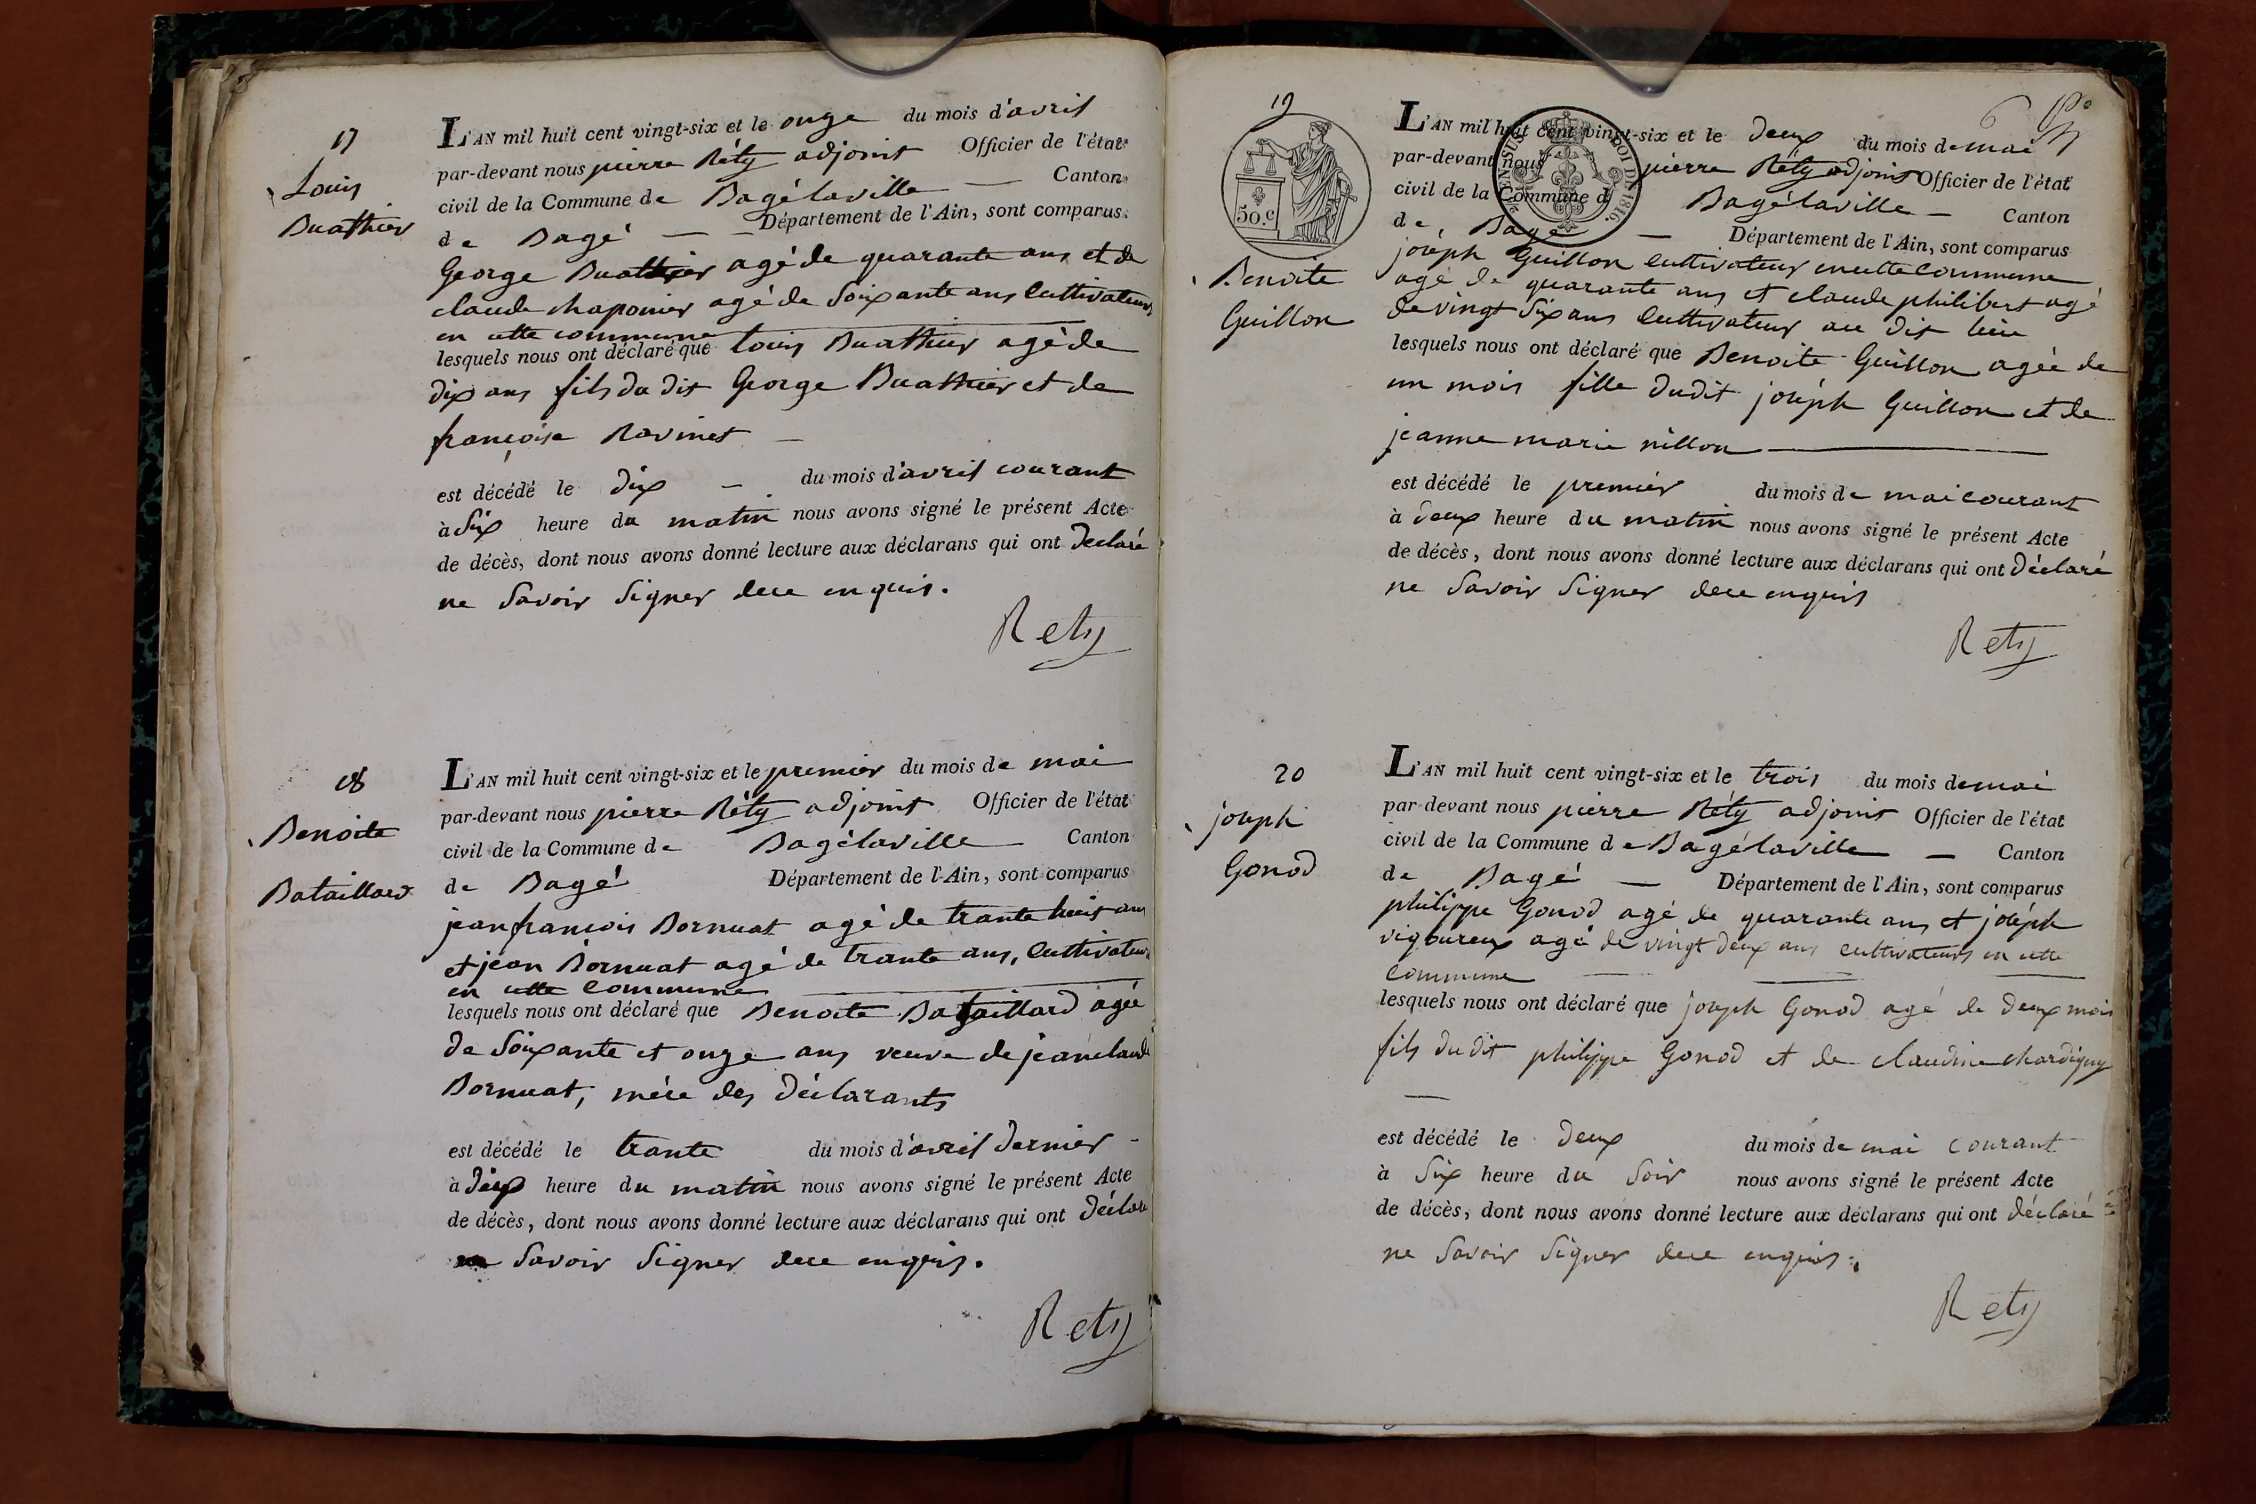 17
Louis
Buathier
L'AN mil huit cent vingt-six et le onze du mois d'avril
par-devant nous pierre Réty adjoint Officier de l'état
civil de la Commune de Bagélaville — Canton
de Bagé — — Département de l'Ain, sont comparus
George Buathier agé de quarante ans et de
claude chaponier agé de Soixante ans Cultivateurs
en cette commune
lesquels nous ont déclaré que Louis Buathier agé de
dix ans fils du dit George Buathier et de
françoise Ravinet —
est décédé le dix — du mois d'avril courant
à Six heure du matin nous avons signé le présent Acte
de décès, dont nous avons donné lecture aux déclarans qui ont declaré
ne Savoir Signer de ce enquis.
Rety
18
Benoite
Bataillard
L'AN mil huit cent vingt-six et le premier du mois de mai
par-devant nous pierre Réty adjoint Officier de l'état
civil de la Commune de Bagélaville Canton
de Bagé Département de l'Ain, sont comparus
jean francois Bornuat agé de trante huit ans
et jean Bornuat agé de trante ans, Cultivateurs
en cette Commune
lesquels nous ont déclaré que Benoite Bataillard agée
de Soixante et onze ans veuve de jean claude
Bornuat, mére des déclarants
est décédé le trante du mois d'avril dernier -
à dix heure du matin nous avons signé le présent Acte
de décès, dont nous avons donné lecture aux déclarans qui ont déclaré
ne Savoir Signer de ce enquis.
Rety
6
19
50.c
Benoite
Guillon
L'AN mil huit cent vingt-six et le deux du mois de mai
par-devant nous pierre Réty adjoint Officier de l'état
civil de la Commune d Bagélaville — Canton
de Bagé — Département de l'Ain, sont comparus
joséph Guillon cultivateur en cette Commune
agé de quarante ans et claude philibert agé
de vingt Six ans Cultivateur au dit lieu
lesquels nous ont déclaré que Benoite Guillon agée de
un mois fille dudit joséph Guillon et de
jeanne marie nillon
est décédé le premier du mois de mai courant
à deux heure du matin nous avons signé le présent Acte
de décès, dont nous avons donné lecture aux déclarans qui ont déclaré
ne Savoir Signer de ce enquis
Rety
20
joseph
Gonod
L'AN mil huit cent vingt-six et le trois du mois de mai
par-devant nous pierre Réty adjoint Officier de l'état
civil de la Commune de Bagélaville — Canton
de Bagé — Département de l'Ain, sont comparus
philippe Gonod agé de quarante ans et joséph
vigoureux agé de vingt deux ans cultivateurs en cette
Commune
lesquels nous ont déclaré que joseph Gonod agé de deux mois
fils du dit philippe Gonod et de claudine chardigny
—
est décédé le deux du mois de mai courant
à Six heure du Soir nous avons signé le présent Acte
de décès, dont nous avons donné lecture aux déclarans qui ont déclaré
ne Savoir Signer de ce enquis.
Rety